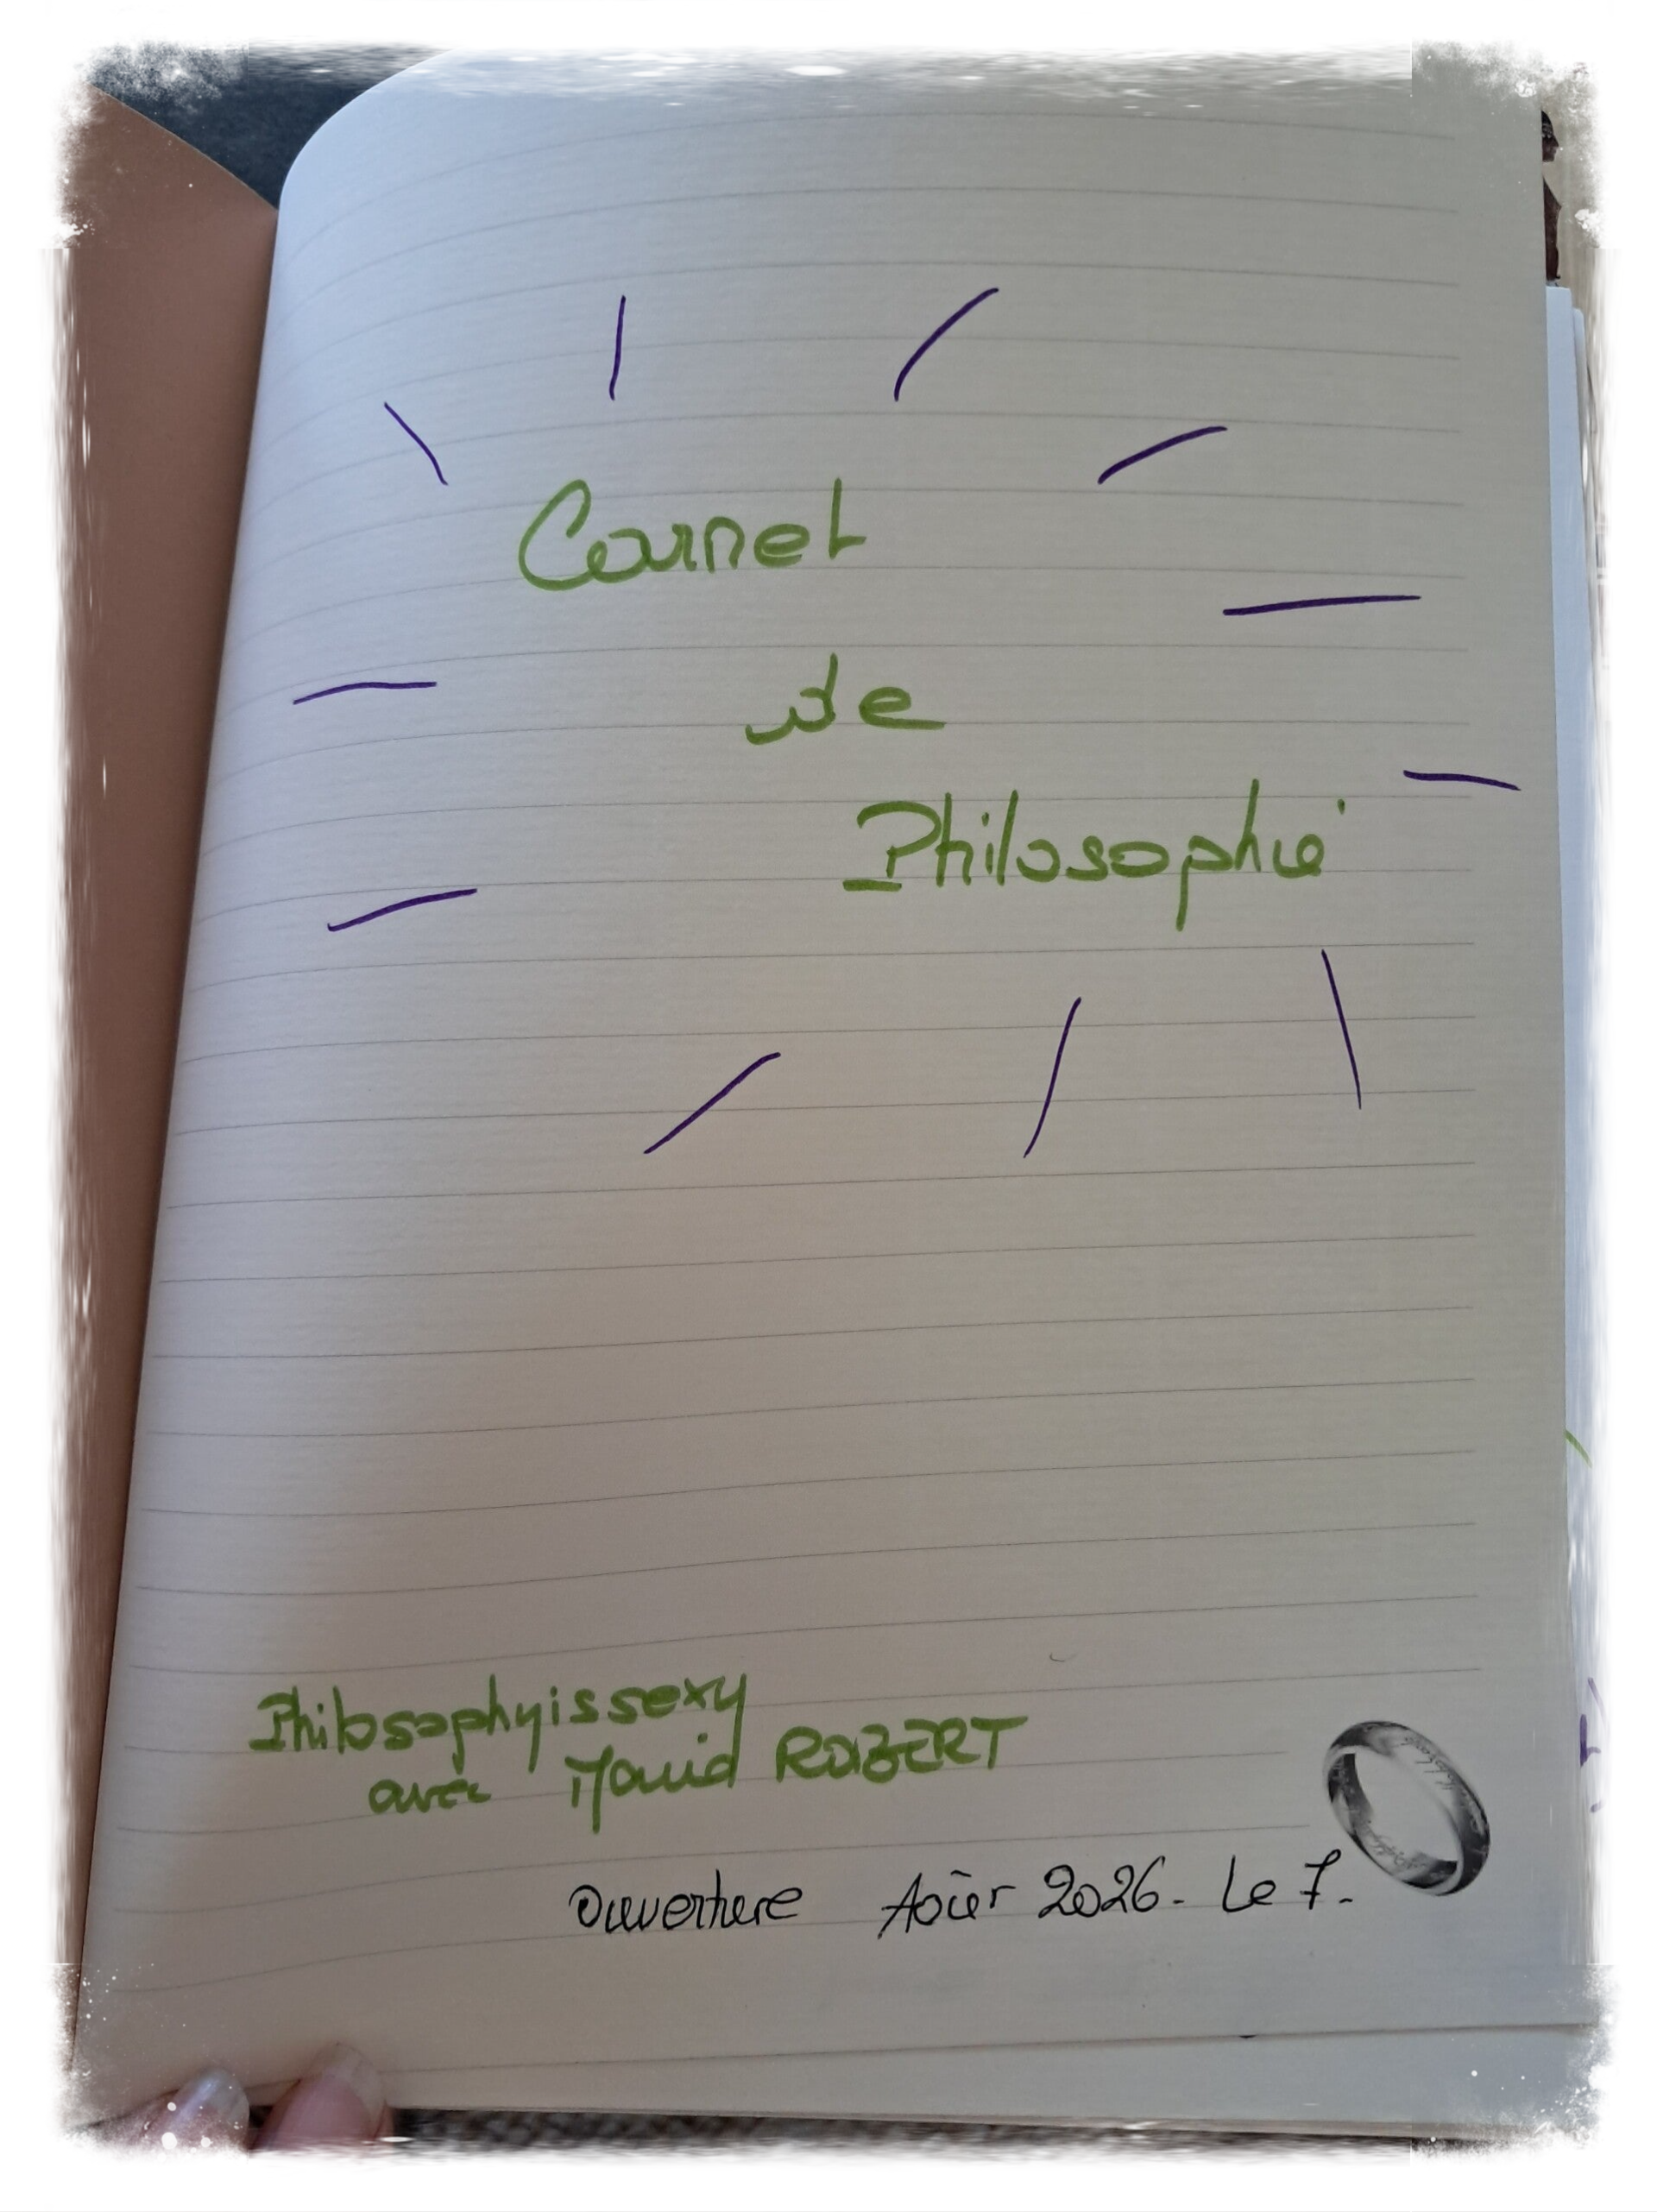 Carnet
de
Philosophie
Philosophyissexy
avec Marie ROBERT
Ouverture Août 2026. Le 7.